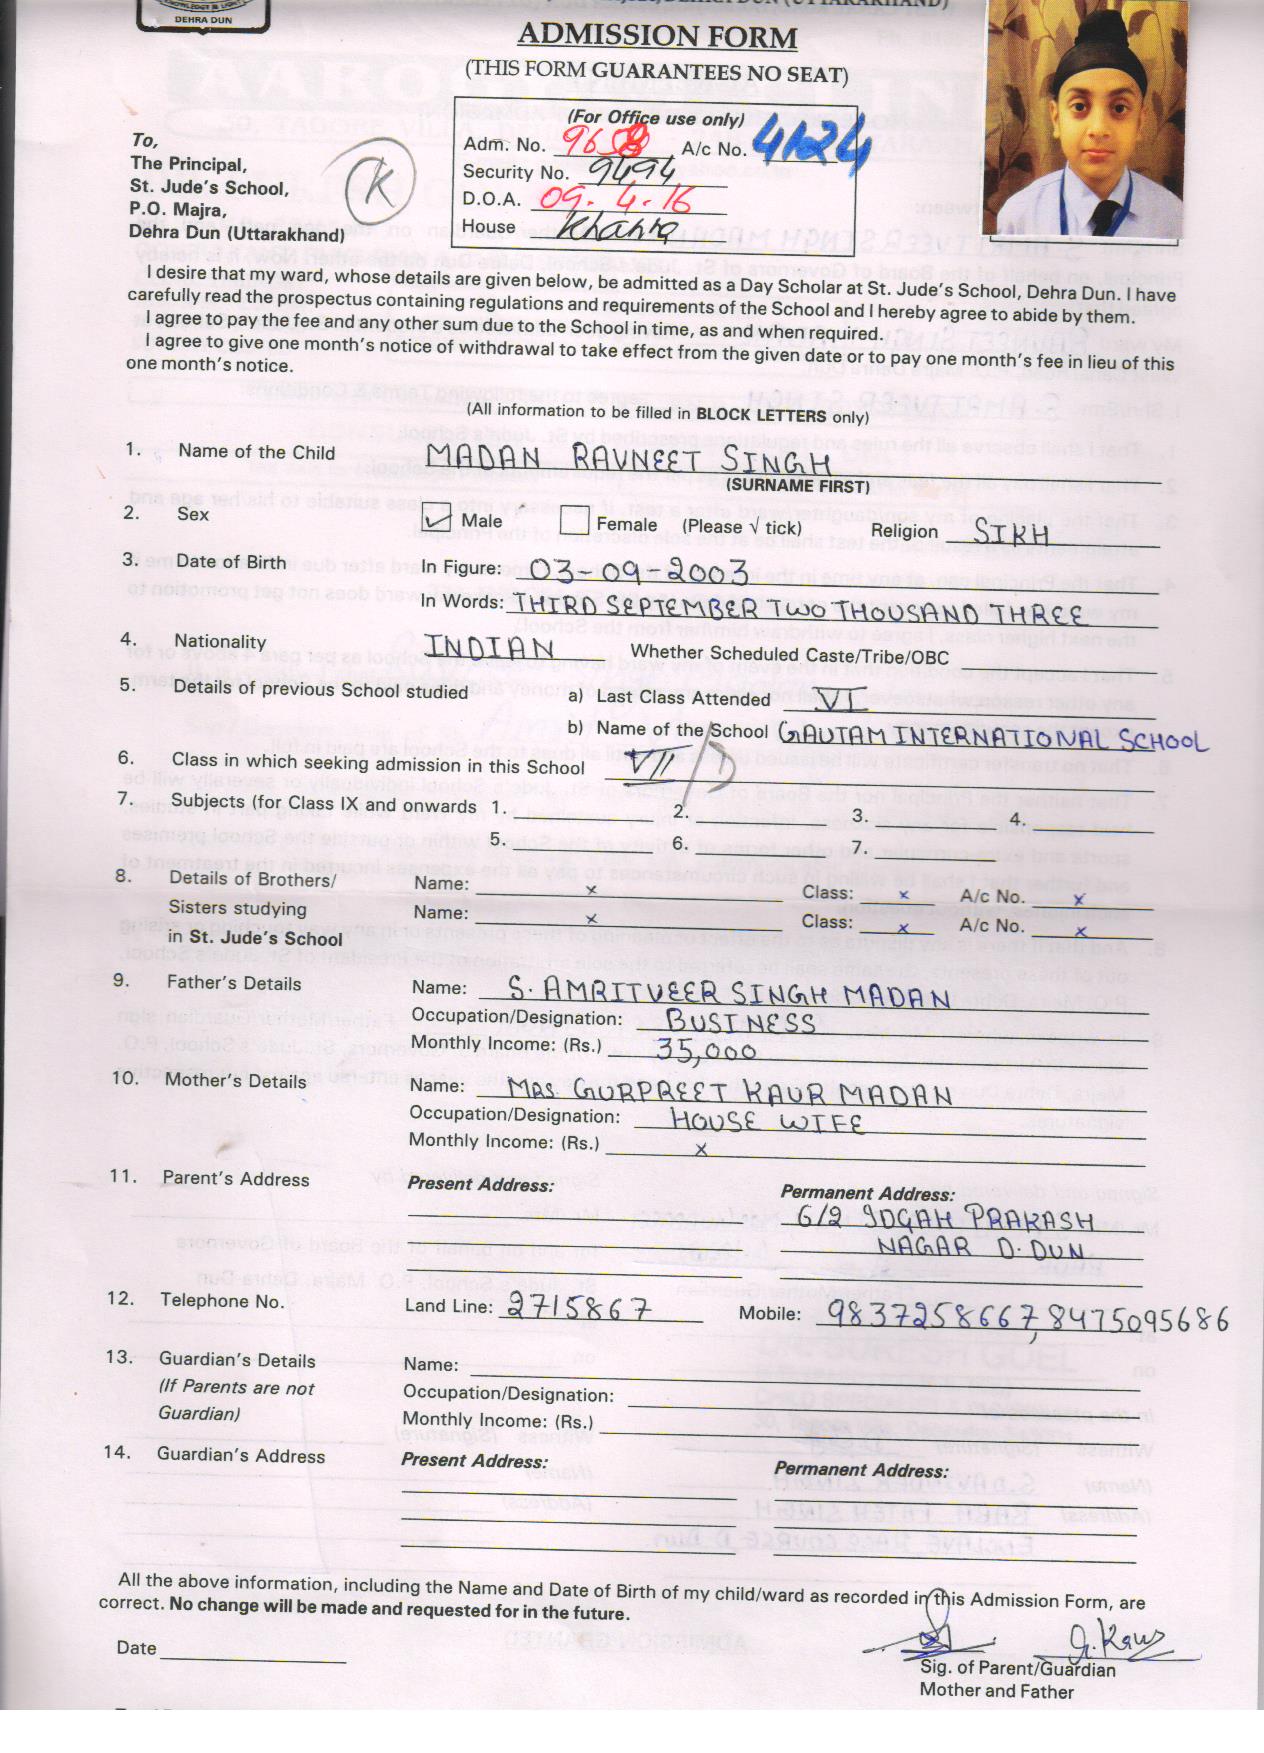 DEHRA DUN
ADMISSION FORM
(THIS FORM GUARANTEES NO SEAT)
(For Office use only)
Adm. No. 9658 A/c No. 4124
Security No. 9494
D.O.A. 09.4.16
House Khanna
K
To,
The Principal,
St. Jude's School,
P.O. Majra,
Dehra Dun (Uttarakhand)
I desire that my ward, whose details are given below, be admitted as a Day Scholar at St. Jude's School, Dehra Dun. I have
carefully read the prospectus containing regulations and requirements of the School and I hereby agree to abide by them.
I agree to pay the fee and any other sum due to the School in time, as and when required.
I agree to give one month's notice of withdrawal to take effect from the given date or to pay one month's fee in lieu of this
one month's notice.
(All information to be filled in BLOCK LETTERS only)
1. Name of the Child MADAN RAVNEET SINGH
(SURNAME FIRST)
2. Sex ✓ Male Female (Please √ tick) Religion SIKH
3. Date of Birth In Figure: 03-09-2003
In Words: THIRD SEPTEMBER TWO THOUSAND THREE
4. Nationality INDIAN Whether Scheduled Caste/Tribe/OBC
5. Details of previous School studied a) Last Class Attended VI
b) Name of the School GAUTAM INTERNATIONAL SCHOOL
6. Class in which seeking admission in this School VII/D
7. Subjects (for Class IX and onwards 1. 2. 3. 4.
5. 6. 7.
8. Details of Brothers/ Name: x Class: x A/c No. x
Sisters studying Name: x Class: x A/c No. x
in St. Jude's School
9. Father's Details Name: S. AMRITVEER SINGH MADAN
Occupation/Designation: BUSINESS
Monthly Income: (Rs.) 35,000
10. Mother's Details Name: MRS. GURPREET KAUR MADAN
Occupation/Designation: HOUSE WIFE
Monthly Income: (Rs.) x
11. Parent's Address Present Address: Permanent Address:
6/2 IDGAH PRAKASH
NAGAR D.DUN
12. Telephone No. Land Line: 2715867 Mobile: 9837258667, 8475095686
13. Guardian's Details Name:
(If Parents are not Occupation/Designation:
Guardian) Monthly Income: (Rs.)
14. Guardian's Address Present Address: Permanent Address:
All the above information, including the Name and Date of Birth of my child/ward as recorded in this Admission Form, are
correct. No change will be made and requested for in the future.
Date G. Kaur
Sig. of Parent/Guardian
Mother and Father